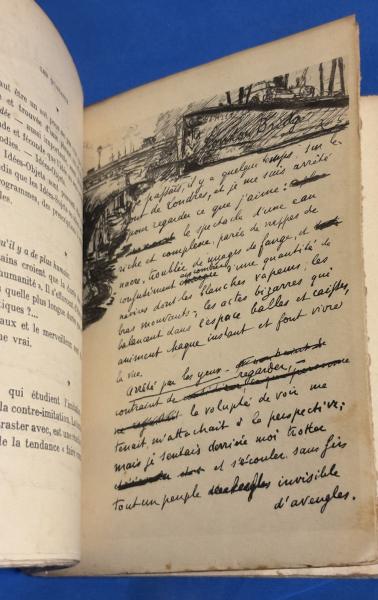 LES
aut être un
et trouve d'un
dée — aussi imper
de et second
odies.
— Idées-Objets
dis que les Idées-Objets
rogrammes, de
u'il y a de plus humain
ains croient que la
humanité ». Il s'efforcent
quelle plus longue du
tiques ?...
aux et le merveilleux
ne vrai.
qui étudient l'imitation
la contre-imitation. Le
raster avec, est une
de la tendance « faire
London Bridge
Je passais, il y a quelque temps, sur le
Pont de Londres, et je me suis arrêté
pour regarder ce que j'aime:
le spectacle d'une eau
riche et complexe, parée de nappes de
nacre, troublée de nuages de fange, et
confusément encombrée d'une quantité de
navires dont les blanches vapeurs, les
bras mouvants, les actes bizarres qui
balancent dans l'espace balles et caisses,
animent chaque instant et font vivre
la vue.
Arrêté par les yeux —
contraint de regarder,—
la volupté de voir me
tenait, m'attachait à la perspective;
mais je sentais derrière moi trotter
et s'écouler sans fin
tout un peuple invisible
d'aveugles.